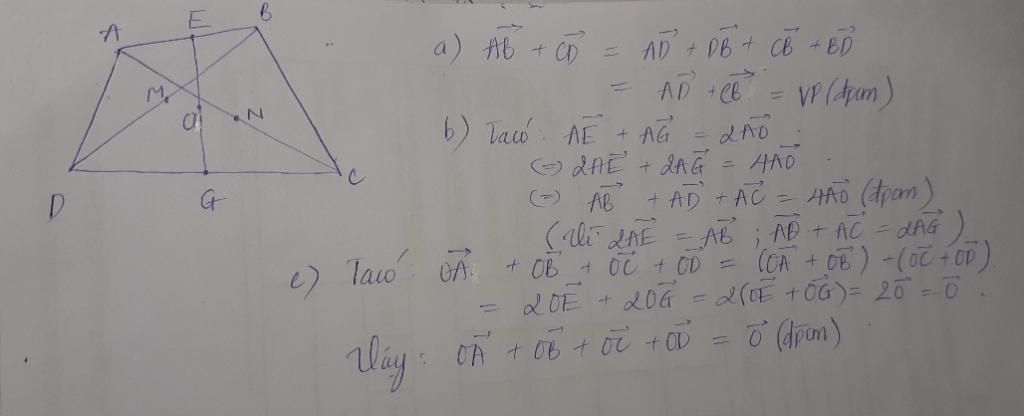 A E B
M O N
D G C
a) \vec{AB} + \vec{CD} = \vec{AD} + \vec{DB} + \vec{CB} + \vec{BD}
= \vec{AD} + \vec{CB} = VP (đpcm)
b) Ta có: \vec{AE} + \vec{AG} = 2\vec{AO}
(=) 2\vec{AE} + 2\vec{AG} = 4\vec{AO}
(=) \vec{AB} + \vec{AD} + \vec{AC} = 4\vec{AO} (đpcm)
(Vì 2\vec{AE} = \vec{AB} ; \vec{AD} + \vec{AC} = 2\vec{AG})
c) Ta có: \vec{OA} + \vec{OB} + \vec{OC} + \vec{OD} = (\vec{OA} + \vec{OB}) + (\vec{OC} + \vec{OD})
= 2\vec{OE} + 2\vec{OG} = 2(\vec{OE} + \vec{OG}) = 2\vec{0} = \vec{0}.
Vậy: \vec{OA} + \vec{OB} + \vec{OC} + \vec{OD} = \vec{0} (đpcm)